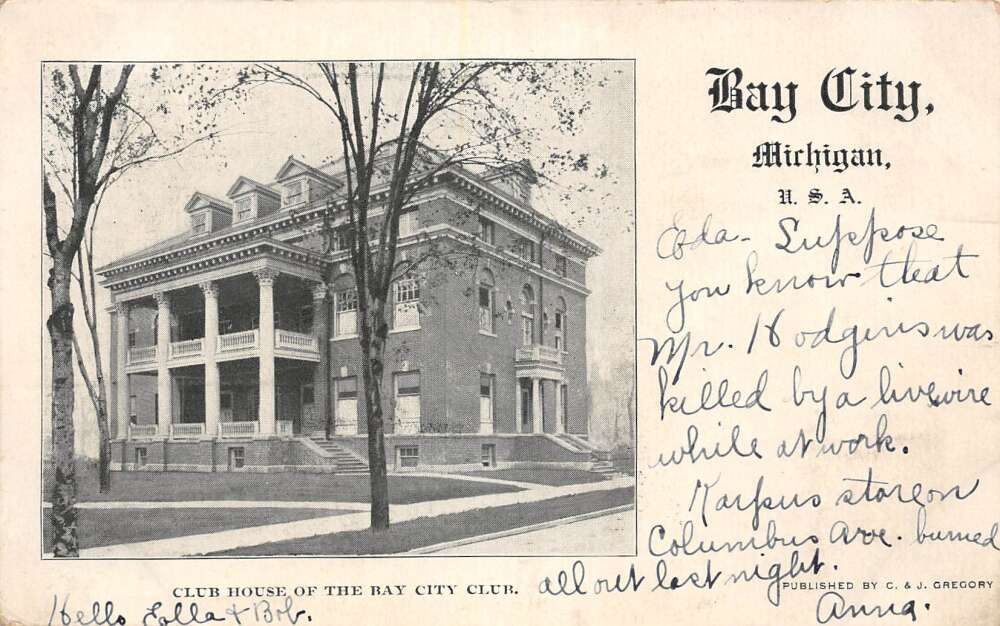 Bay City,
Michigan,
U. S. A.
Eda - Suppose
you know that
Mr. Hodgins was
killed by a live wire
while at work.
Karpus store on
Columbus Ave. burned
all out last night.
Anna.
PUBLISHED BY C. & J. GREGORY
CLUB HOUSE OF THE BAY CITY CLUB.
Hello Ella & Bob.